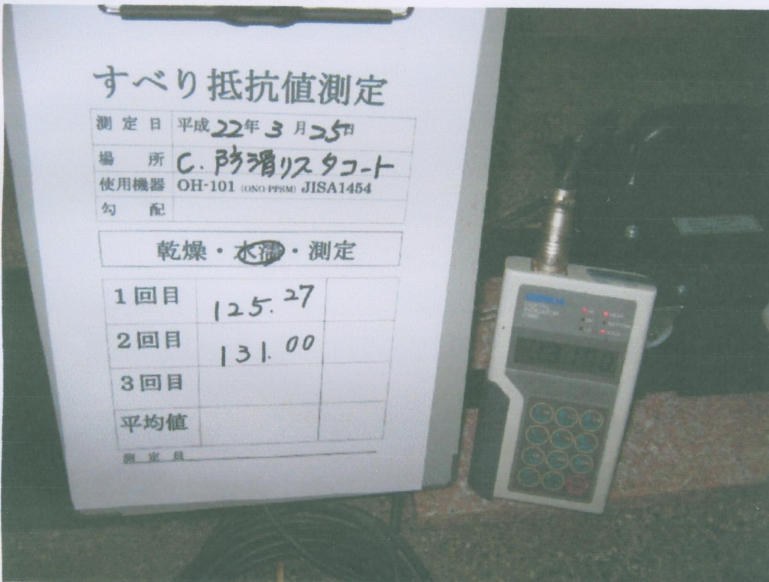 すべり抵抗値測定
測定日 平成22年3月25日
場所 C.防滑リスタコート
使用機器 OH-101 (ONO・PPSM) JISA1454
勾配
乾燥・水濡・測定
1回目 125.27
2回目 131.00
3回目
平均値
測定員